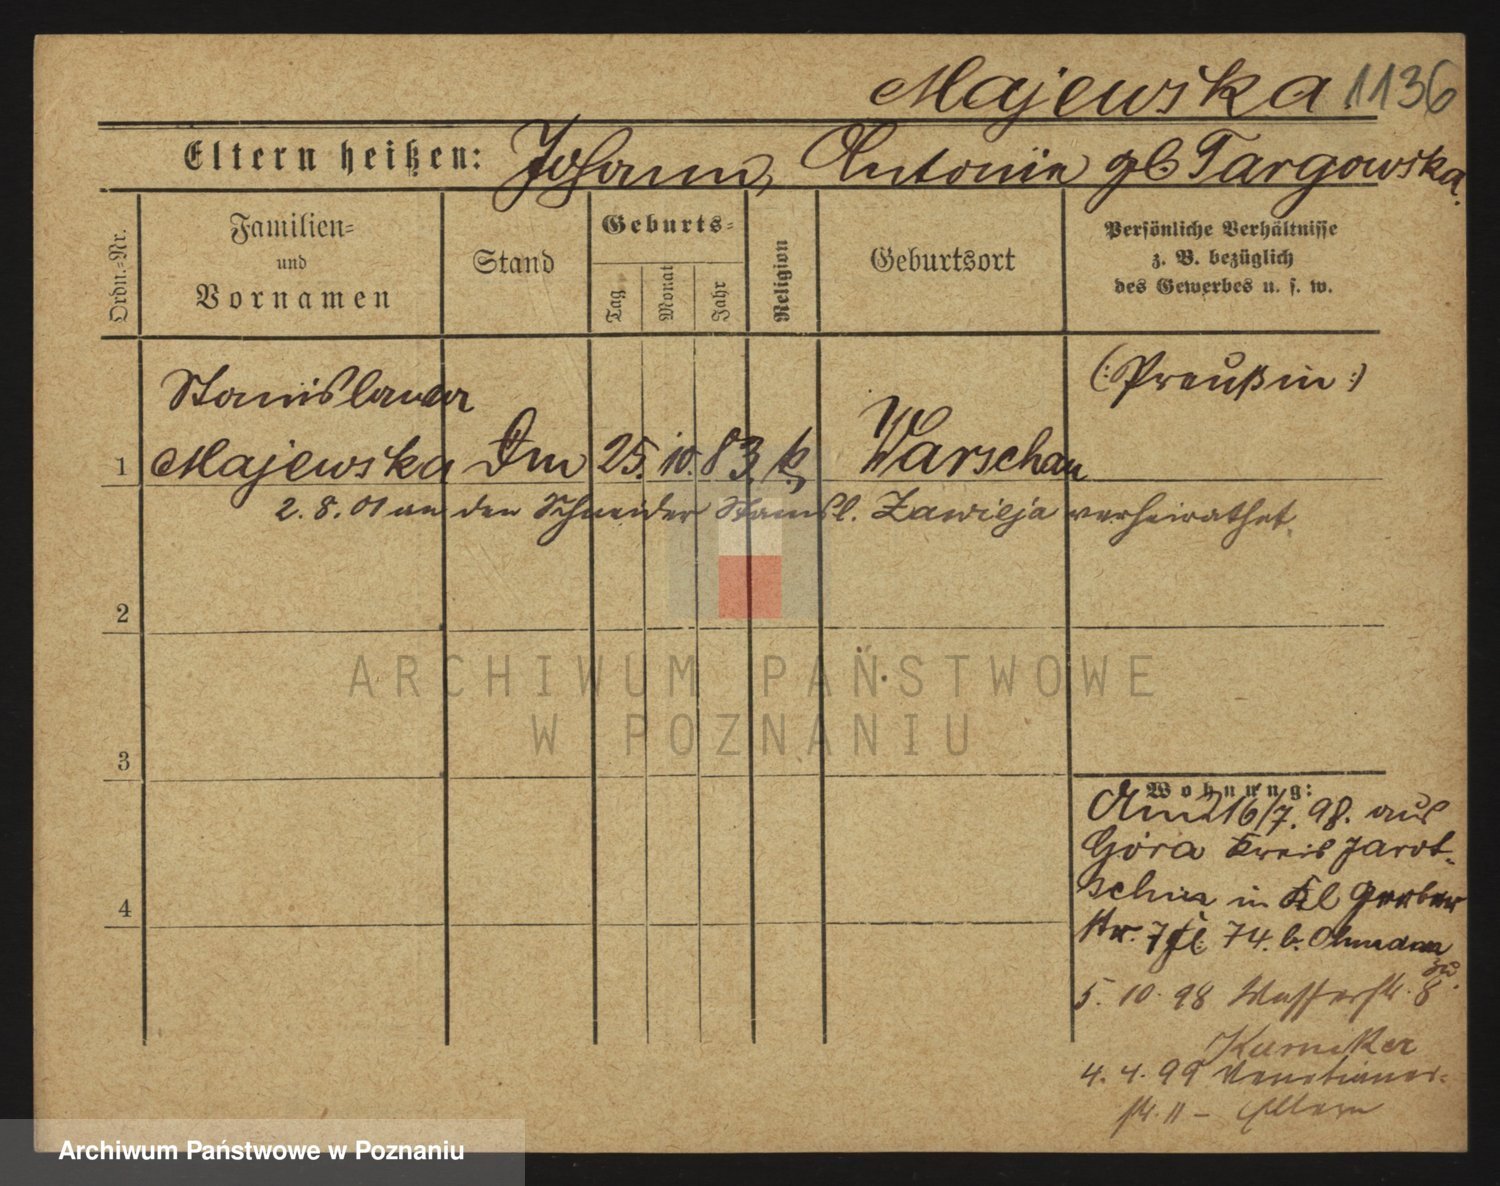 Majewska 1136
Eltern heißen: Johann, Antonie gb Targowska.
Ordn.-Nr.
Familien-
und
Vornamen
Stand
Geburts-
Tag
Monat
Jahr
Religion
Geburtsort
Persönliche Verhältnisse
z. B. bezüglich
des Gewerbes u. s. w.
(: Preußin :)
Stanislawa
1 Majewska Dm 25. 10. 83. k. Warschau
2. 8. 01 an den Schneider Stanisl. Zawieja verheirathet.
2
3
4
Wohnung:
Am 16/7. 98. aus
Góra Kreis Jarot-
schin in Kl Gerber
str. 7 74. b.
zu.
5. 10. 98 Wasserstr. 8
Kurniker
4. 4. 99 Venetianer-
str. 11 - Eltern
ARCHIWUM PAŃSTWOWE
W POZNANIU
Archiwum Państwowe w Poznaniu